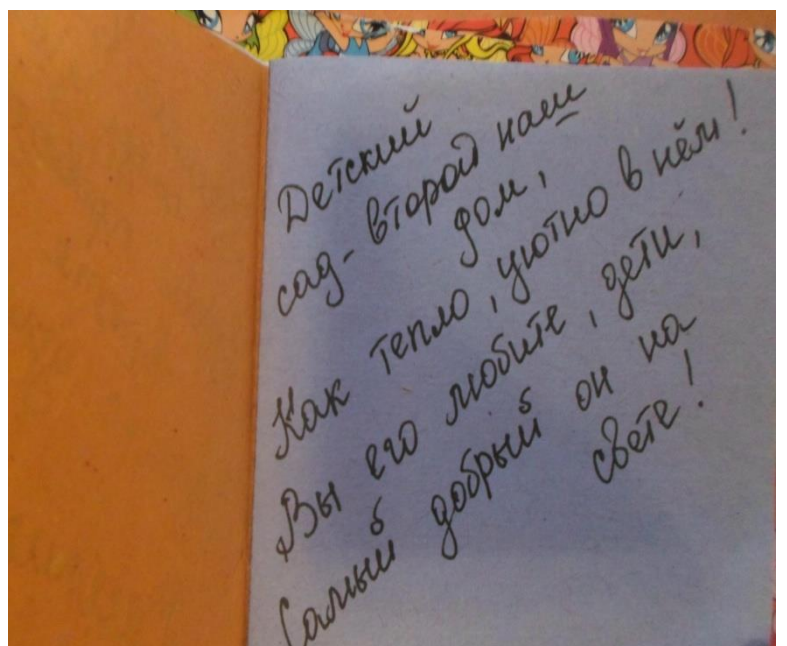 Детский
сад- второй наш
дом,
Как тепло, уютно в нём!
Вы его любите, дети,
Самый добрый он на
свете!